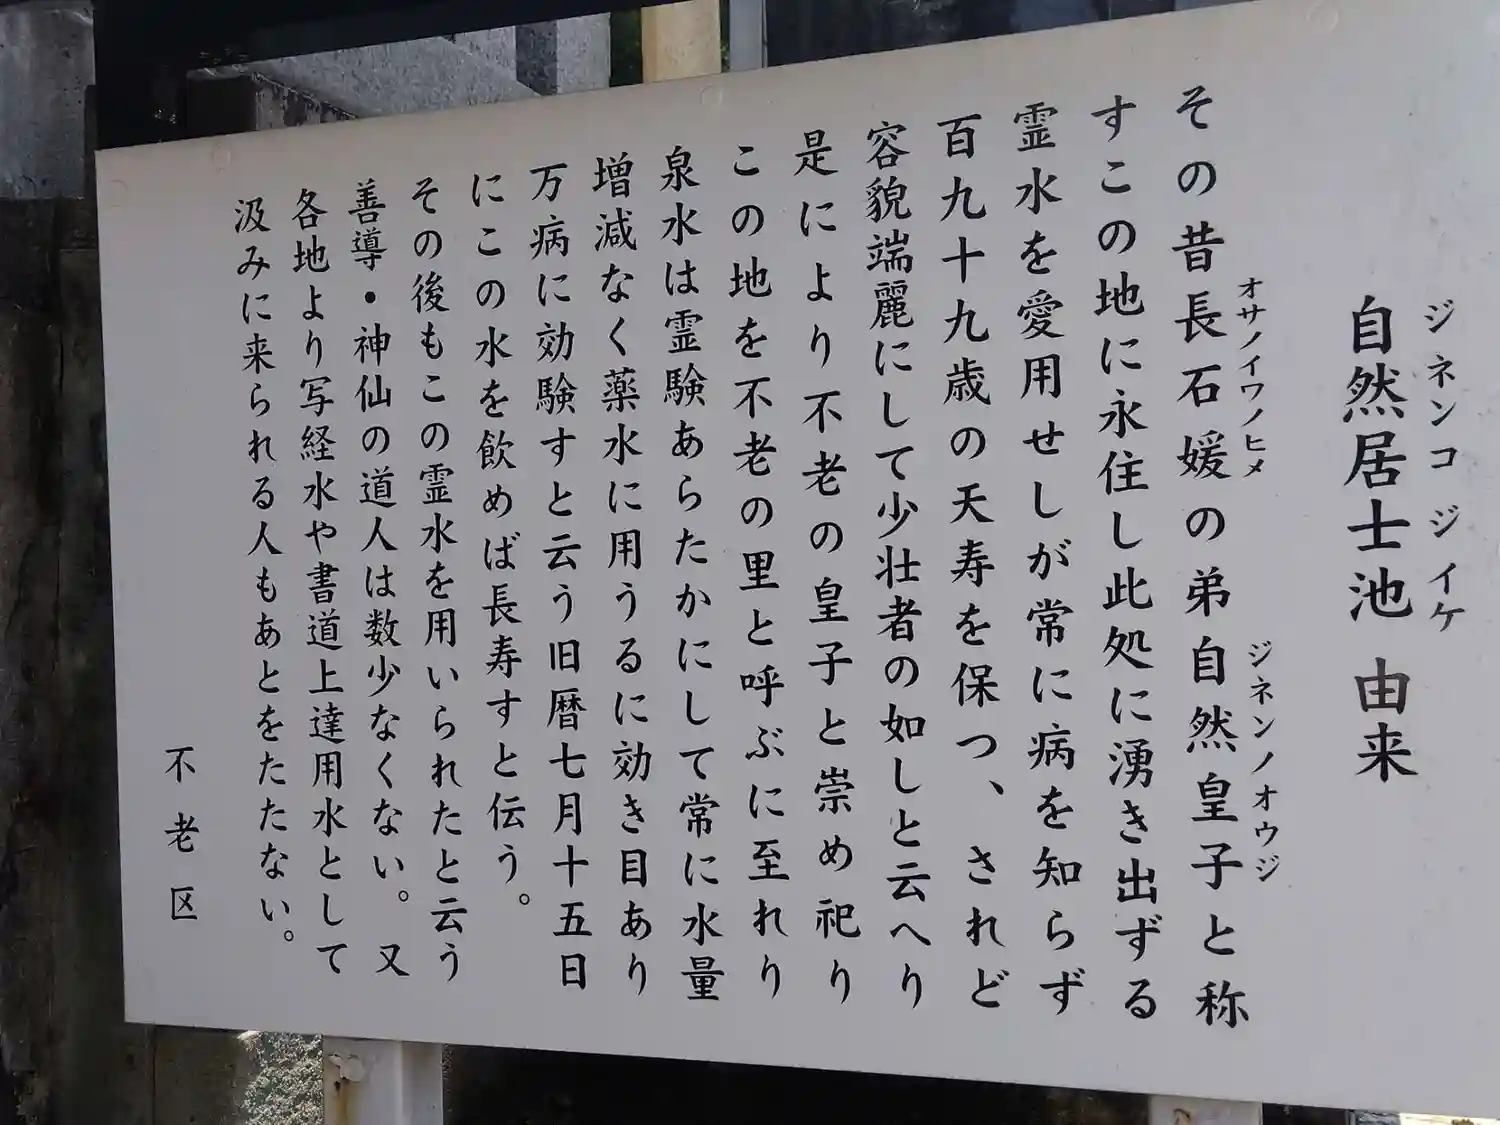 ジネンコジイケ
自然居士池 由来
オサノイワノヒメ ジネンノオウジ
その昔長石媛の弟自然皇子と称
すこの地に永住し此処に湧き出ずる
霊水を愛用せしが常に病を知らず
百九十九歳の天寿を保つ、されど
容貌端麗にして少壮者の如しと云へり
是により不老の皇子と崇め祀り
この地を不老の里と呼ぶに至れり
泉水は霊験あらたかにして常に水量
増減なく薬水に用うるに効き目あり
万病に効験すと云う旧暦七月十五日
にこの水を飲めば長寿すと伝う。
その後もこの霊水を用いられたと云う
善導・神仙の道人は数少なくない。又
各地より写経水や書道上達用水として
汲みに来られる人もあとをたたない。
不老区